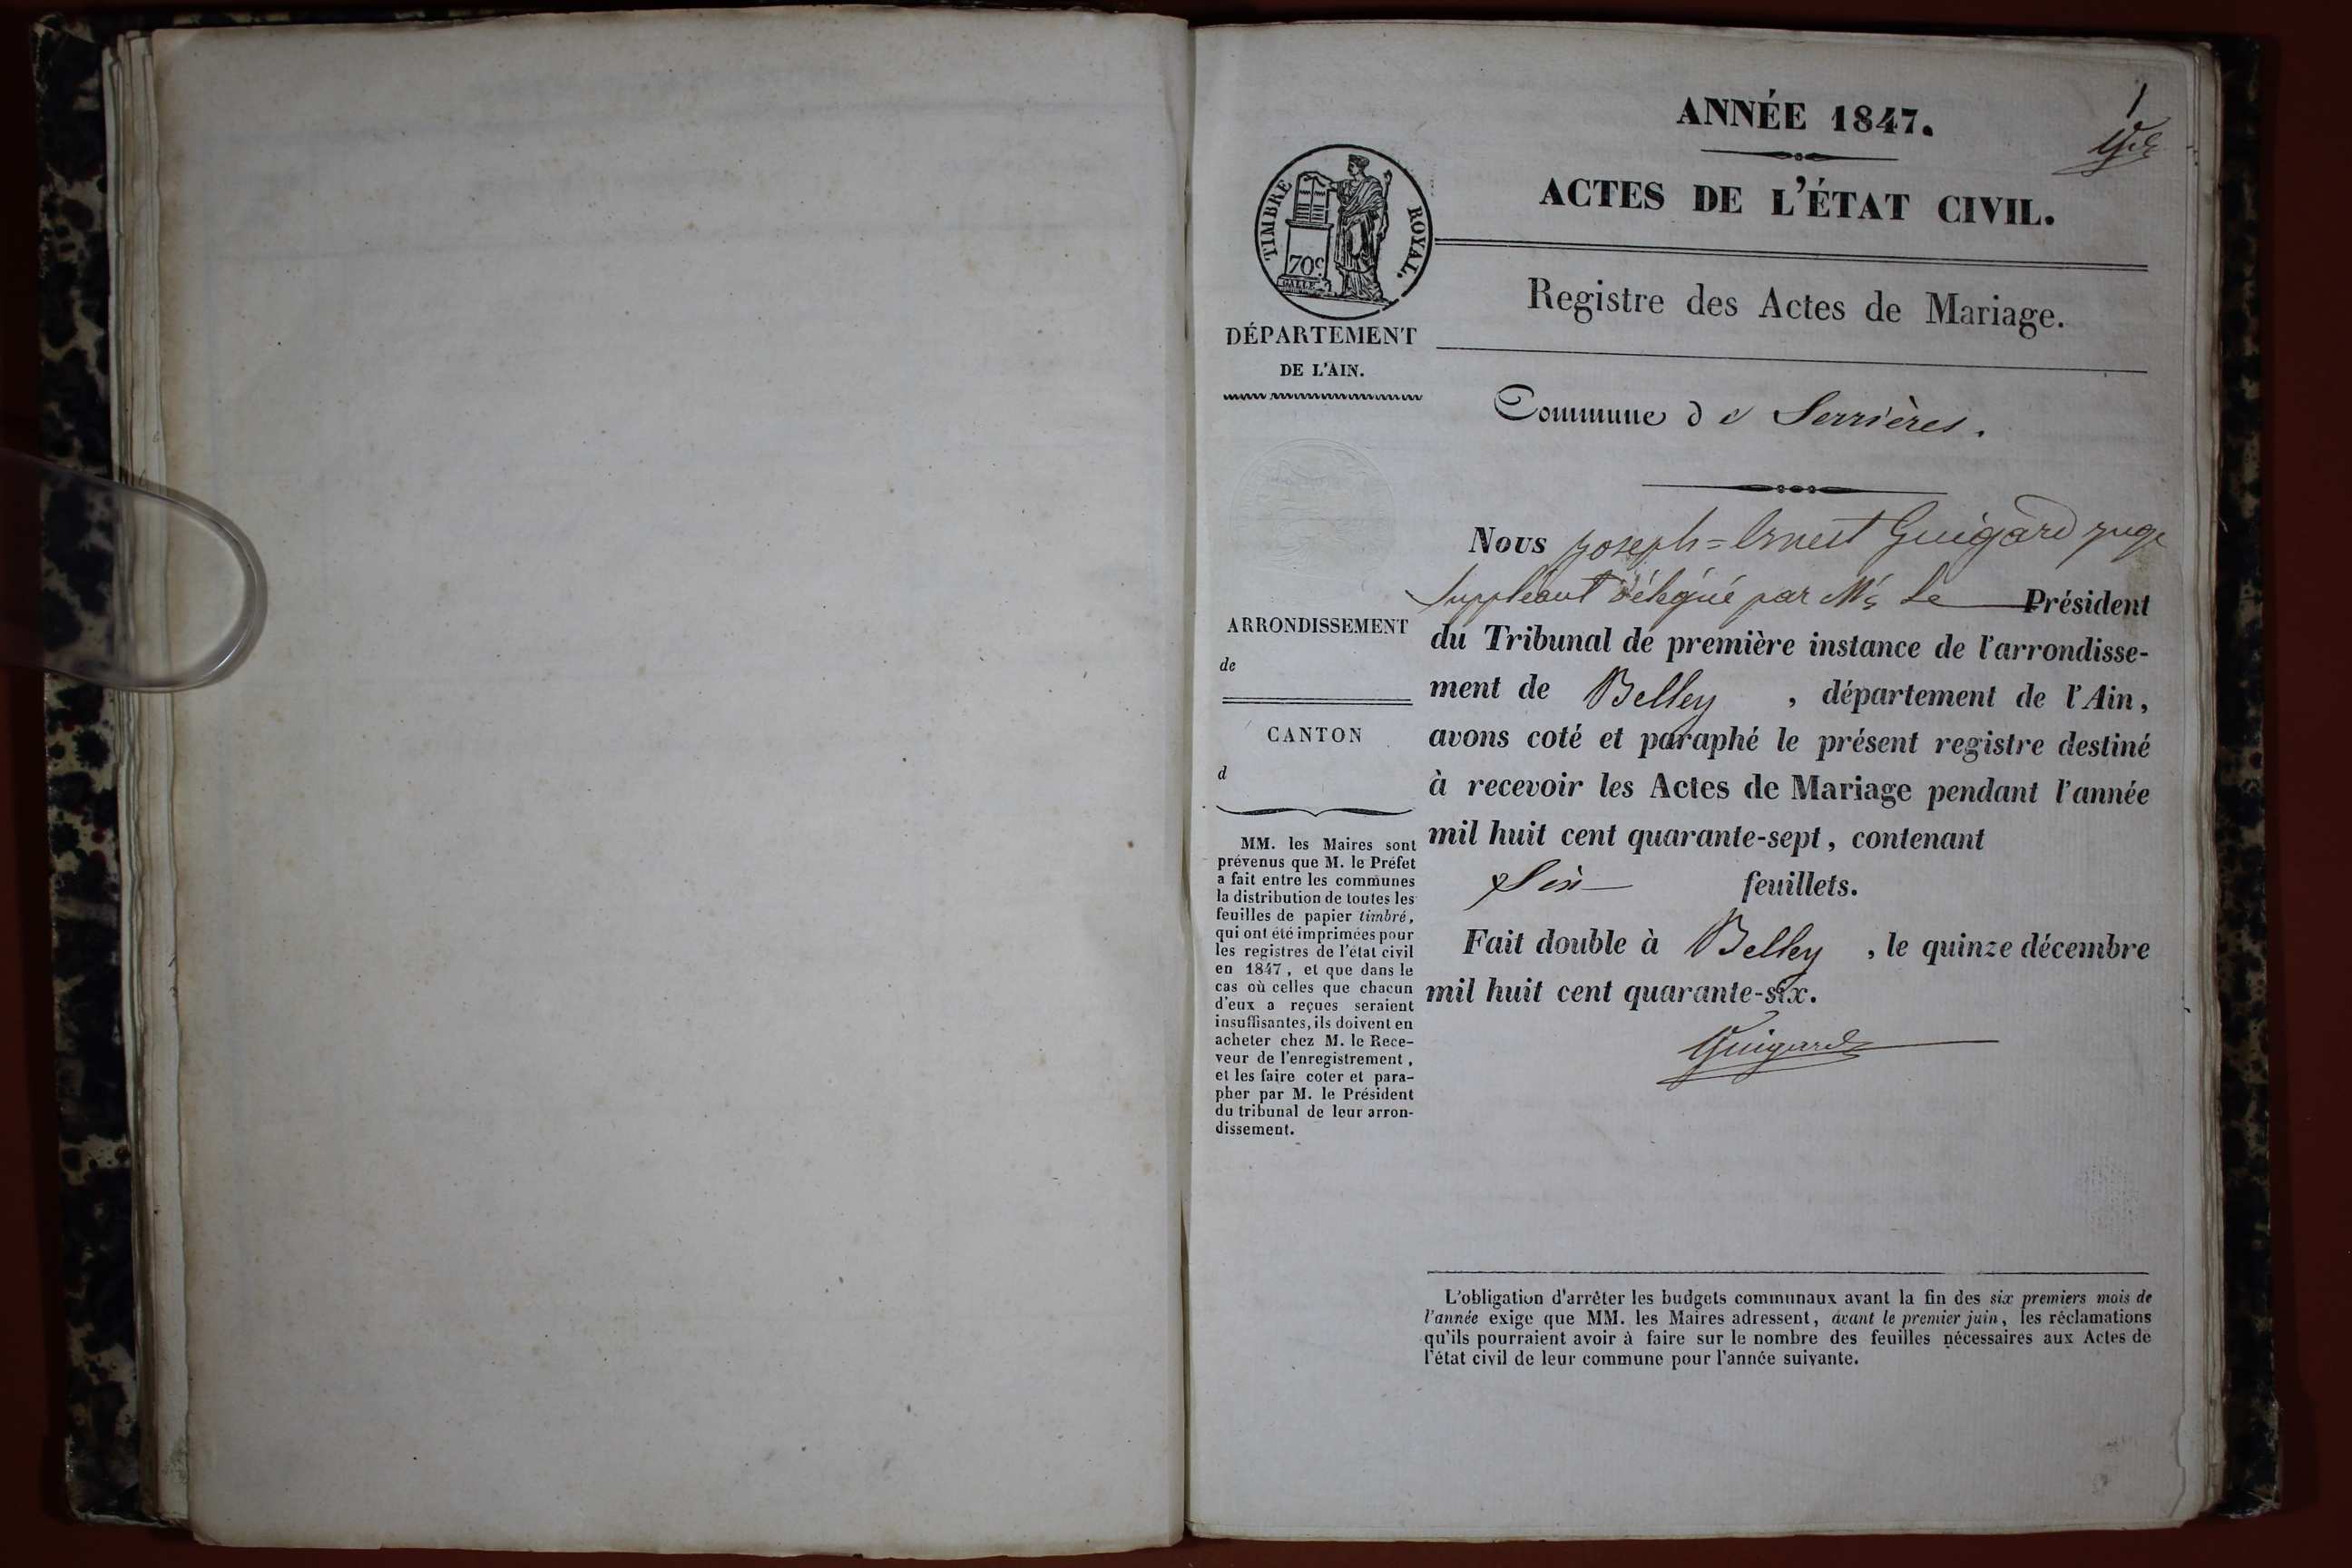 1
ANNÉE 1847.
ACTES DE L'ÉTAT CIVIL.
TIMBRE ROYAL.
70c
GALLE
Registre des Actes de Mariage.
DÉPARTEMENT
DE L'AIN.
Commune de Serrières.
Nous joseph=Ernest Guigard juge
Suppléant délégué par Mr Le Président
du Tribunal de première instance de l'arrondisse-
ment de Belley , département de l'Ain,
avons coté et paraphé le présent registre destiné
à recevoir les Actes de Mariage pendant l'année
mil huit cent quarante-sept, contenant
Six feuillets.
Fait double à Belley , le quinze décembre
mil huit cent quarante-six.
Guigard
ARRONDISSEMENT
de
CANTON
d
MM. les Maires sont
prévenus que M. le Préfet
a fait entre les communes
la distribution de toutes les
feuilles de papier timbré,
qui ont été imprimées pour
les registres de l'état civil
en 1847, et que dans le
cas où celles que chacun
d'eux a reçues seraient
insuffisantes, ils doivent en
acheter chez M. le Rece-
veur de l'enregistrement,
et les faire coter et para-
pher par M. le Président
du tribunal de leur arron-
dissement.
L'obligation d'arrêter les budgets communaux avant la fin des six premiers mois de
l'année exige que MM. les Maires adressent, avant le premier juin, les réclamations
qu'ils pourraient avoir à faire sur le nombre des feuilles nécessaires aux Actes de
l'état civil de leur commune pour l'année suivante.